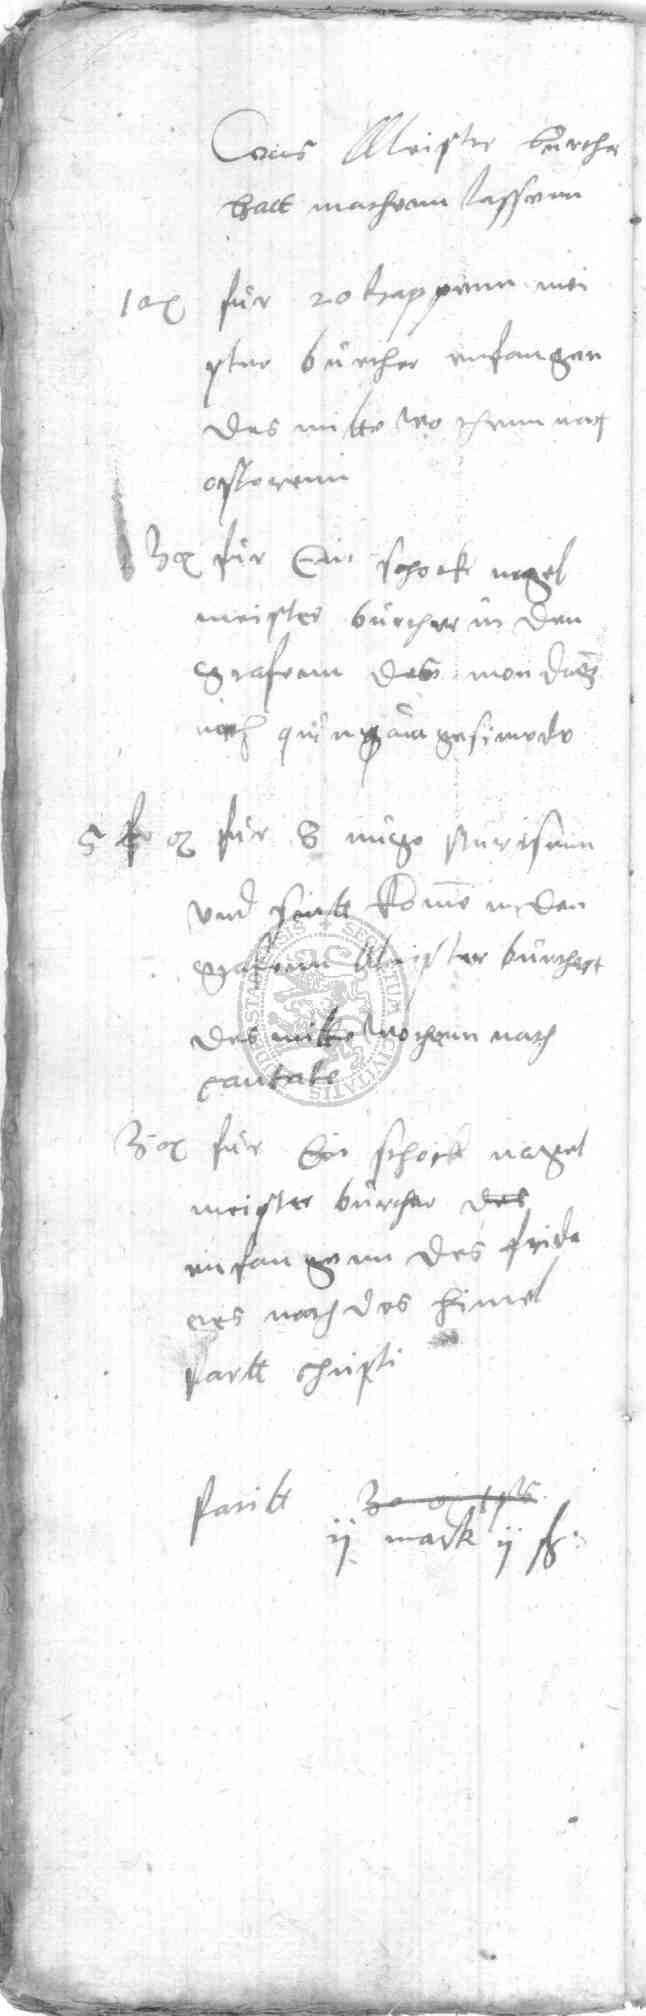 Was Meister bürcher
hatt machenn lassenn
10 g für 20 kappenn mei
ster bürcher enfangen
des mittwochenn nach
osterenn
3 g für Ein schock nagel
meister bürcher in den
grafenn des mondag
nach quinquagesimodo
5 g für 8
vnd sintt komē in den
grafenn Meister bürcher
des mittewochenn nach
cantate
3 g für Ein schock nagel
meister bürcher des
enfangenn des frida
ges nach des himel
fartt christi
facitt
ij mark ij
SECRETUM CIVITATIS